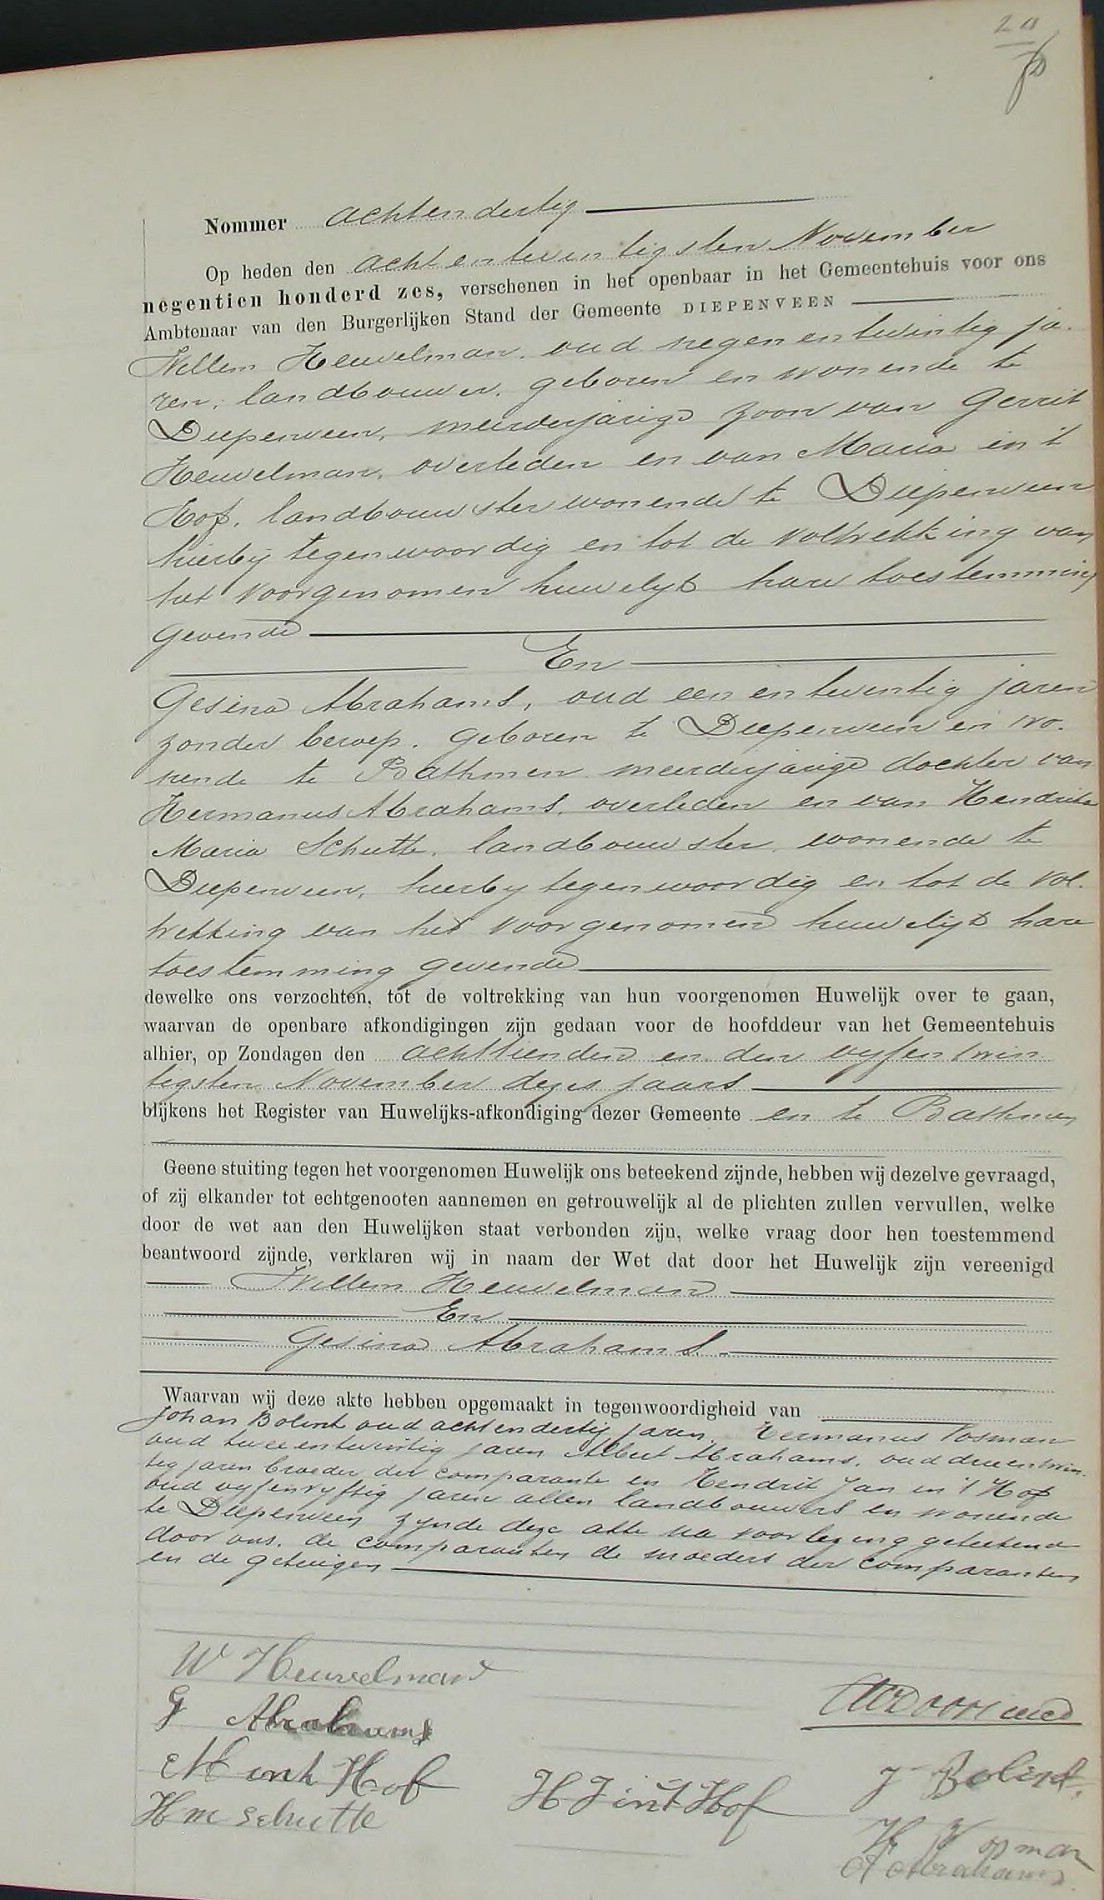 20
Nommer achtendertig
Op heden den achtentwintigsten November
negentien honderd zes, verschenen in het openbaar in het Gemeentehuis voor ons
Ambtenaar van den Burgerlijken Stand der Gemeente DIEPENVEEN
Willem Heuvelman, oud negenentwintig ja-
ren, landbouwer, geboren en wonende te
Diepenveen, meerderjarige zoon van Gerrit
Heuvelman, overleden en van Maria in 't
Hof, landbouwster wonende te Diepenveen
hierbij tegenwoordig en tot de voltrekking van
het voorgenomen huwelijk hare toestemming
gevende
En
Gesina Abrahams, oud eenentwintig jaren
zonder beroep, geboren te Diepenveen en wo-
nende te Bathmen meerderjarige dochter van
Hermanus Abrahams, overleden en van Hendrika
Maria Schutte, landbouwster, wonende te
Diepenveen, hierbij tegenwoordig en tot de vol-
trekking van het voorgenomen huwelijk hare
toestemming gevende
dewelke ons verzochten, tot de voltrekking van hun voorgenomen Huwelijk over te gaan,
waarvan de openbare afkondigingen zijn gedaan voor de hoofddeur van het Gemeentehuis
alhier, op Zondagen den achttienden en den vijfentwin
tigsten November dezes jaars
blijkens het Register van Huwelijks-afkondiging dezer Gemeente en te Bathmen
Geene stuiting tegen het voorgenomen Huwelijk ons beteekend zijnde, hebben wij dezelve gevraagd,
of zij elkander tot echtgenooten aannemen en getrouwelijk al de plichten zullen vervullen, welke
door de wet aan den Huwelijken staat verbonden zijn, welke vraag door hen toestemmend
beantwoord zijnde, verklaren wij in naam der Wet dat door het Huwelijk zijn vereenigd
Willem Heuvelman
En
Gesina Abrahams
Waarvan wij deze akte hebben opgemaakt in tegenwoordigheid van
Johan Bolink oud achtendertig jaren, Hermanus Vosman
oud tweeentwintig jaren Albert Abrahams, oud drieentwin-
tig jaren broeder der comparante en Hendrik Jan in 't Hof
oud vijfenvijftig jaren allen landbouwers en wonende
te Diepenveen zijnde deze akte na voorlezing geteekend
door ons, de comparanten de moeders der comparanten
en de getuigen
W Heuvelman
G Abrahams
M int Hof
H J int Hof
J Bolink
H M Schutte
H Vosman
A Abrahams